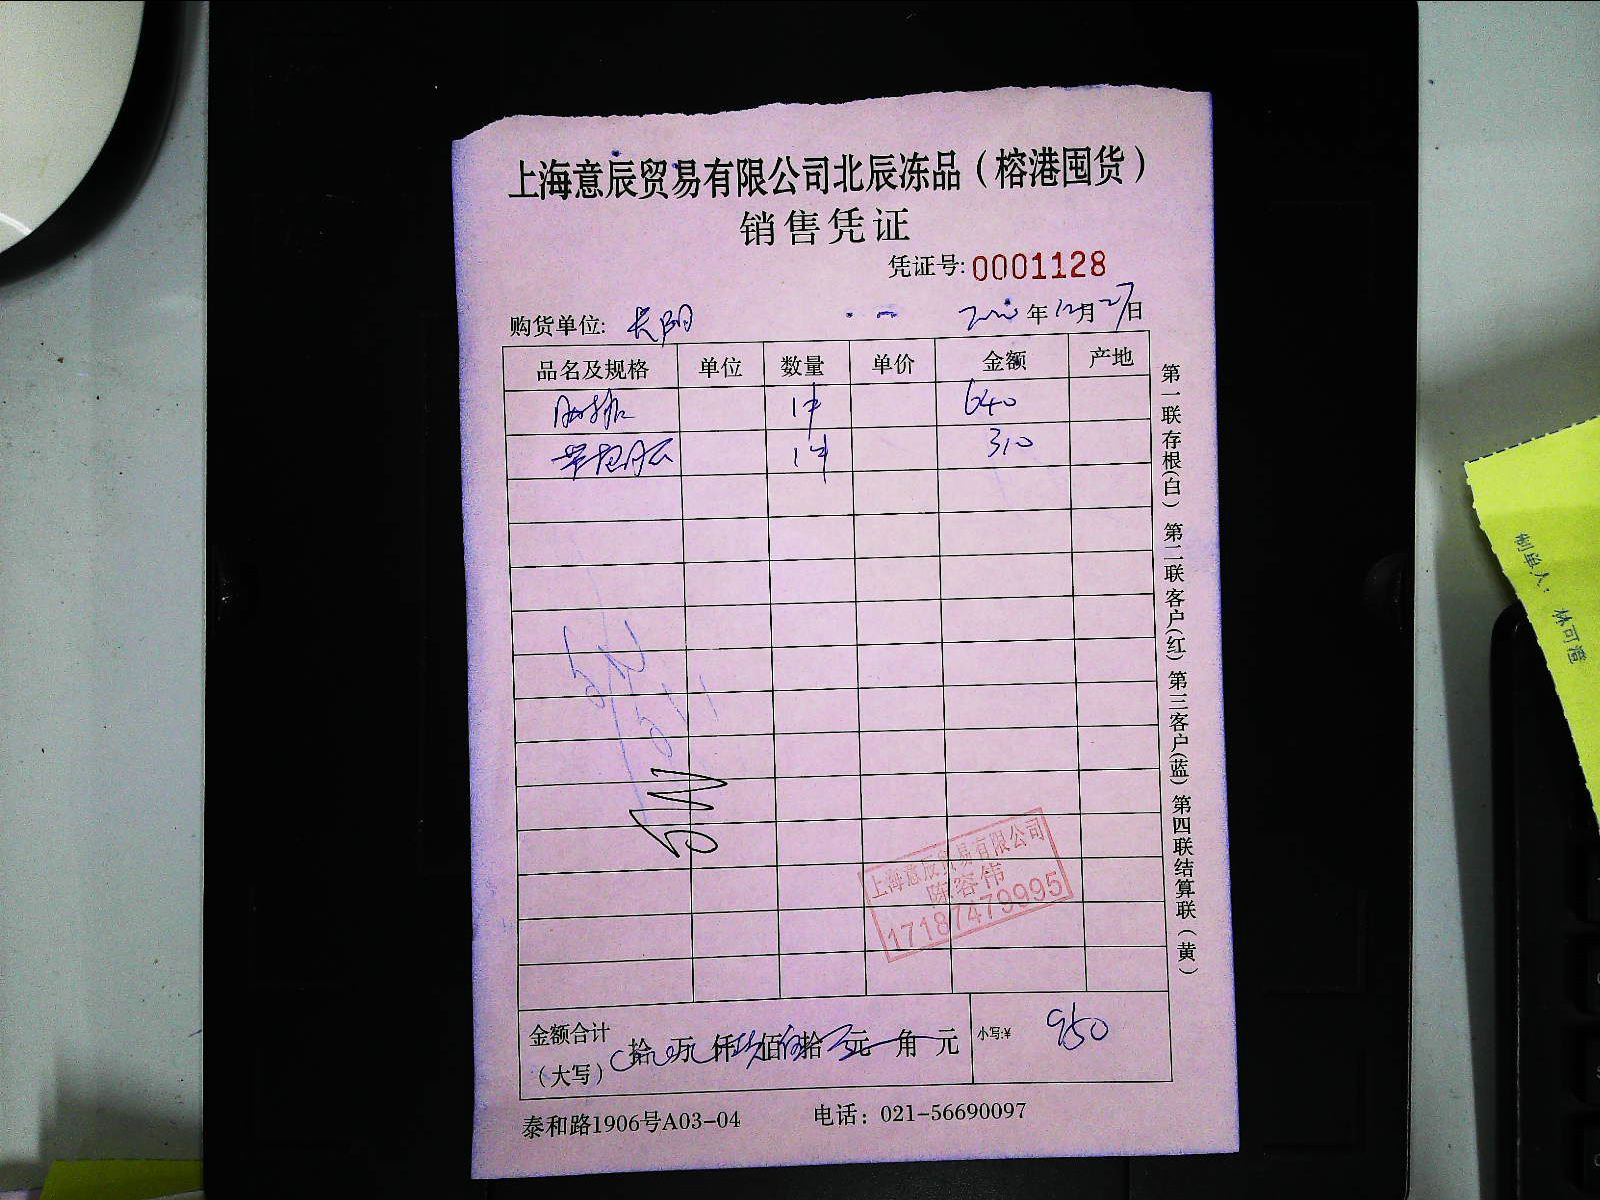 上海意辰贸易有限公司北辰冻品（榕港囤货）
销售凭证
凭证号:0001128
购货单位: 长阳
2020年12月27日
品名及规格 单位 数量 单价 金额 产地
1件 640
1件 310
上海意辰贸易有限公司
陈容伟
17187479995
金额合计
（大写）
拾 万 仟 佰 拾 元 角 元
小写:¥ 950
泰和路1906号A03-04 电话：021-56690097
第一联存根(白) 第二联客户(红) 第三客户(蓝) 第四联结算联(黄)
制单人：林可滢